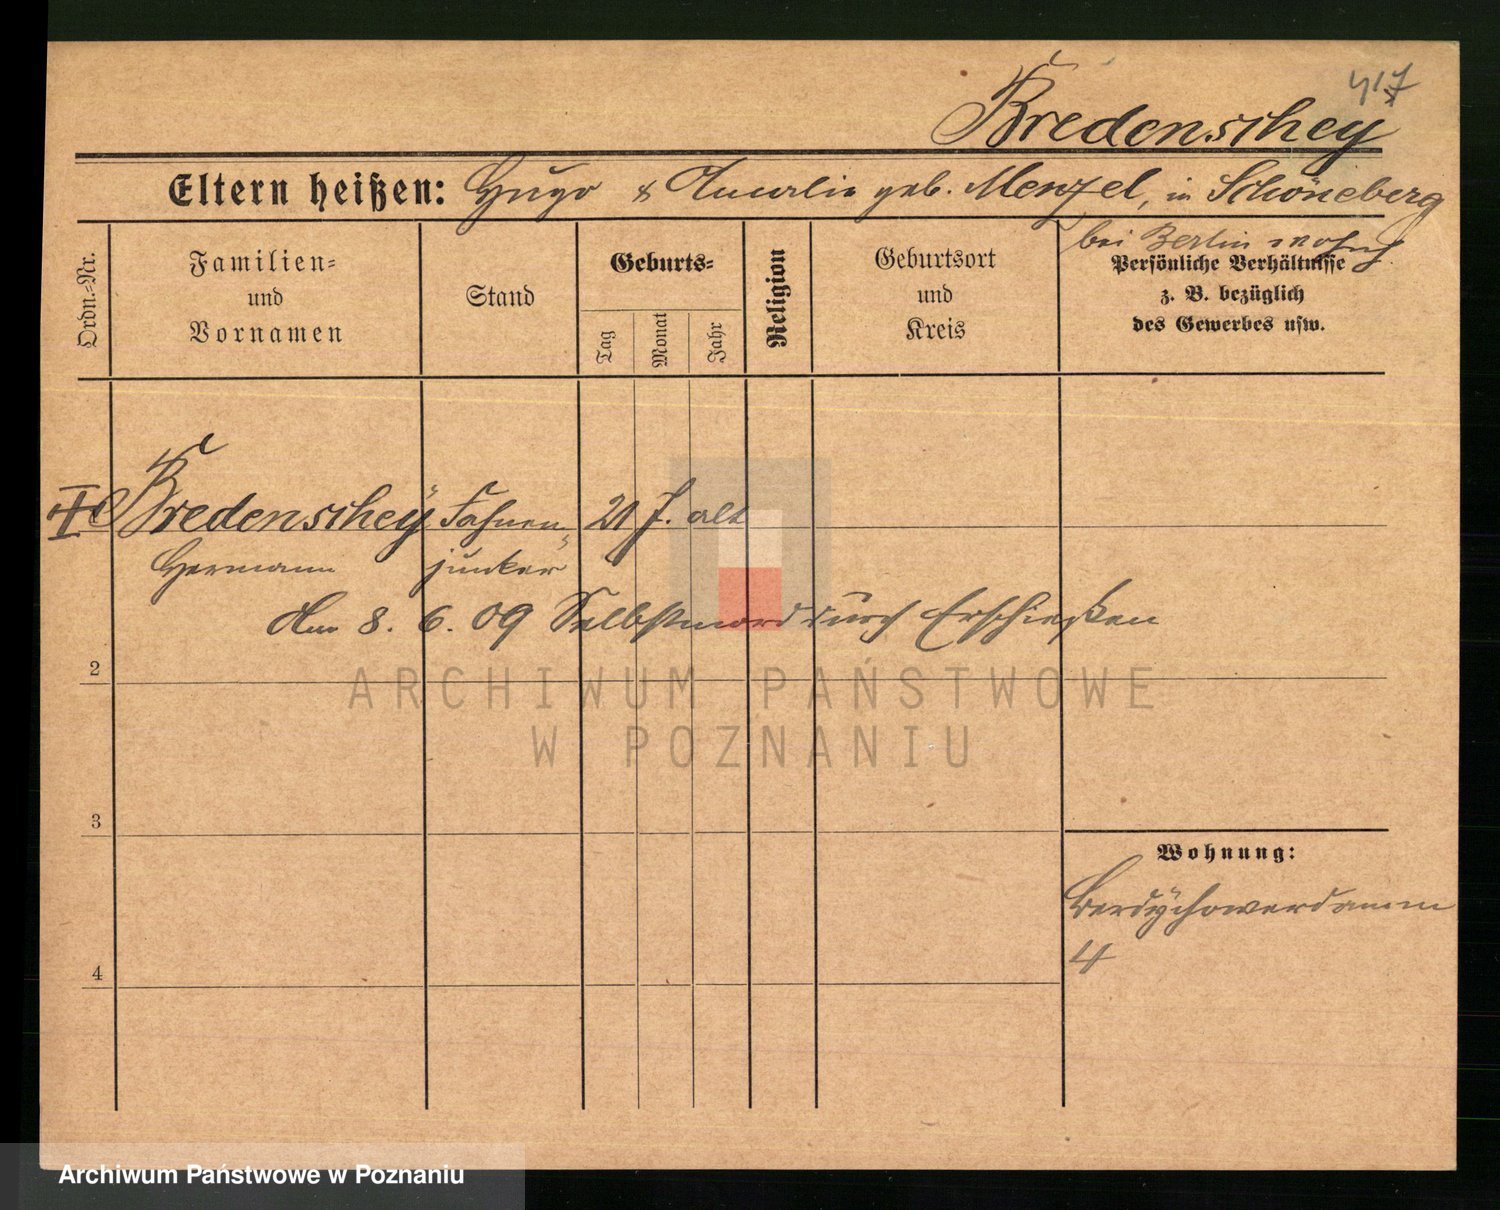 417
Bredenschey
Eltern heißen: Hugo & Amalie geb. Menzel, in Schöneberg
bei Berlin wohnh.
Ordn.-Nr.
Familien-
und
Vornamen
Stand
Geburts-
Tag
Monat
Jahr
Religion
Geburtsort
und
Kreis
Persönliche Verhältnisse
z. B. bezüglich
des Gewerbes usw.
Bredenschey Fahnen- 21 J. alt
Hermann junker
Am 8. 6. 09 Selbstmord durch Erschießen
2
3
4
Wohnung:
Berdychowerdamm
4
ARCHIWUM PAŃSTWOWE
W POZNANIU
Archiwum Państwowe w Poznaniu